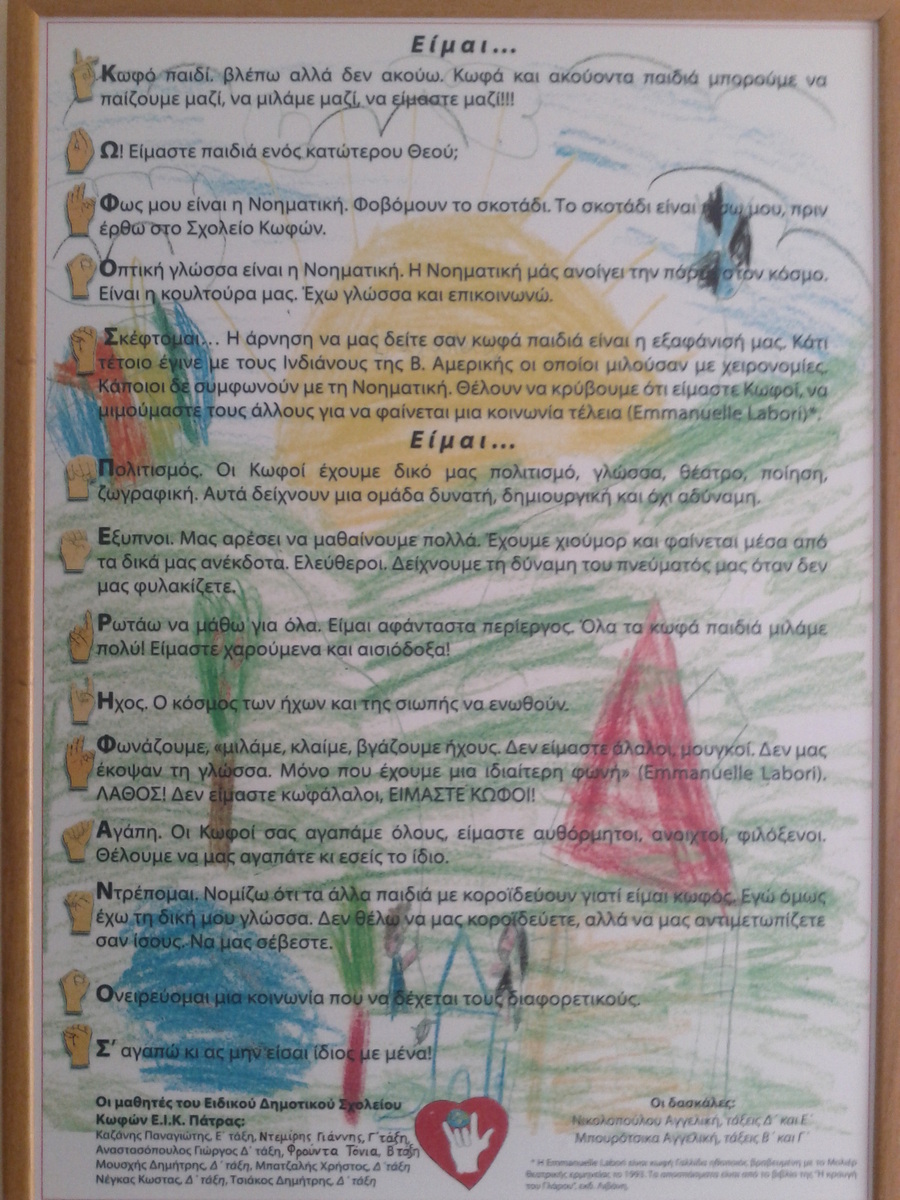 Είμαι...
Κωφό παιδί. βλέπω αλλά δεν ακούω. Κωφά και ακούοντα παιδιά μπορούμε να
παίζουμε μαζί, να μιλάμε μαζί, να είμαστε μαζί!!!
Ω! Είμαστε παιδιά ενός κατώτερου Θεού;
Φως μου είναι η Νοηματική. Φοβόμουν το σκοτάδι. Το σκοτάδι είναι πίσω μου, πριν
έρθω στο Σχολείο Κωφών.
Οπτική γλώσσα είναι η Νοηματική. Η Νοηματική μάς ανοίγει την πόρτα στον κόσμο.
Είναι η κουλτούρα μας. Έχω γλώσσα και επικοινωνώ.
Σκέφτομαι... Η άρνηση να μας δείτε σαν κωφά παιδιά είναι η εξαφάνισή μας. Κάτι
τέτοιο έγινε με τους Ινδιάνους της Β. Αμερικής οι οποίοι μιλούσαν με χειρονομίες.
Κάποιοι δε συμφωνούν με τη Νοηματική. Θέλουν να κρύβουμε ότι είμαστε Κωφοί, να
μιμούμαστε τους άλλους για να φαίνεται μια κοινωνία τέλεια (Emmanuelle Labori)*.
Είμαι...
Πολιτισμός. Οι Κωφοί έχουμε δικό μας πολιτισμό, γλώσσα, θέατρο, ποίηση,
ζωγραφική. Αυτά δείχνουν μια ομάδα δυνατή, δημιουργική και όχι αδύναμη.
Εξυπνοι. Μας αρέσει να μαθαίνουμε πολλά. Έχουμε χιούμορ και φαίνεται μέσα από
τα δικά μας ανέκδοτα. Ελεύθεροι. Δείχνουμε τη δύναμη του πνεύματός μας όταν δεν
μας φυλακίζετε.
Ρωτάω να μάθω για όλα. Είμαι αφάνταστα περίεργος. Όλα τα κωφά παιδιά μιλάμε
πολύ! Είμαστε χαρούμενα και αισιόδοξα!
Ηχος. Ο κόσμος των ήχων και της σιωπής να ενωθούν.
Φωνάζουμε, «μιλάμε, κλαίμε, βγάζουμε ήχους. Δεν είμαστε άλαλοι, μουγκοί. Δεν μας
έκοψαν τη γλώσσα. Μόνο που έχουμε μια ιδιαίτερη φωνή» (Emmanuelle Labori).
ΛΑΘΟΣ! Δεν είμαστε κωφάλαλοι, ΕΙΜΑΣΤΕ ΚΩΦΟΙ!
Αγάπη. Οι Κωφοί σας αγαπάμε όλους, είμαστε αυθόρμητοι, ανοιχτοί, φιλόξενοι.
Θέλουμε να μας αγαπάτε κι εσείς το ίδιο.
Ντρέπομαι. Νομίζω ότι τα άλλα παιδιά με κοροϊδεύουν γιατί είμαι κωφός. Εγώ όμως
έχω τη δική μου γλώσσα. Δεν θέλω να μας κοροϊδεύετε, αλλά να μας αντιμετωπίζετε
σαν ίσους. Να μας σέβεστε.
Ονειρεύομαι μια κοινωνία που να δέχεται τους διαφορετικούς.
Σ' αγαπώ κι ας μην είσαι ίδιος με μένα!
Οι μαθητές του Ειδικού Δημοτικού Σχολείου
Κωφών Ε.Ι.Κ. Πάτρας:
Καζάνης Παναγιώτης, Ε΄ τάξη, Ντεμίρης Γιάννης, Γ΄ τάξη,
Αναστασόπουλος Γιώργος Δ΄ τάξη, Φρούντα Τόνια, Β΄ τάξη
Μουσχής Δημήτρης, Δ΄ τάξη, Μπατζαλής Χρήστος, Δ΄τάξη
Νέγκας Κωστας, Δ΄ τάξη, Τσιάκος Δημήτρης, Δ΄ τάξη
Οι δασκάλες:
Νικολοπούλου Αγγελική, τάξεις Δ΄ και Ε΄
Μπουρότσικα Αγγελική, τάξεις Β΄ και Γ΄
* Η Emmanuelle Labori είναι κωφή Γαλλίδα ηθοποιός βραβευμένη με το Μολιέρ
θεατρικής ερμηνείας το 1993. Τα αποσπάσματα είναι από το βιβλίο της "Η κραυγή
του Γλάρου", εκδ. Λιβάνη.